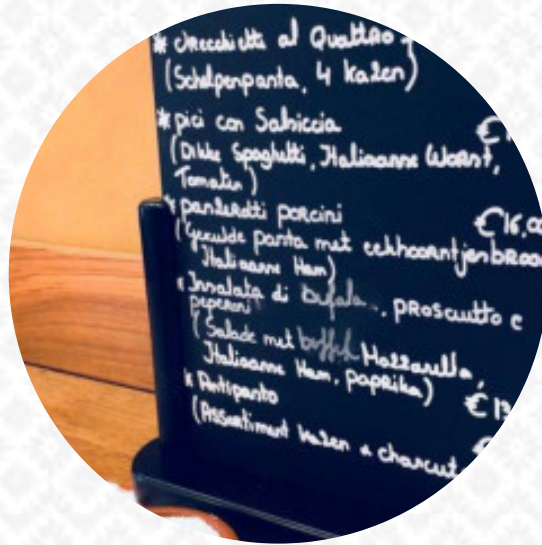 * orecchiette al Quattro
(Schelpenpasta, 4 Kazen)
* pici con Salsiccia
(Dikke Spaghetti, Italiaanse Worst,
Tomaten)
* panzerotti porcini €16,00
(Gevulde pasta met eekhoorntjesbrood
Italiaanse Ham)
* Insalata di Bufala, prosciutto e
peperoni
(Salade met buffel Mozzarella,
Italiaanse Ham, paprika)
* Antipasto
(Assortiment kazen